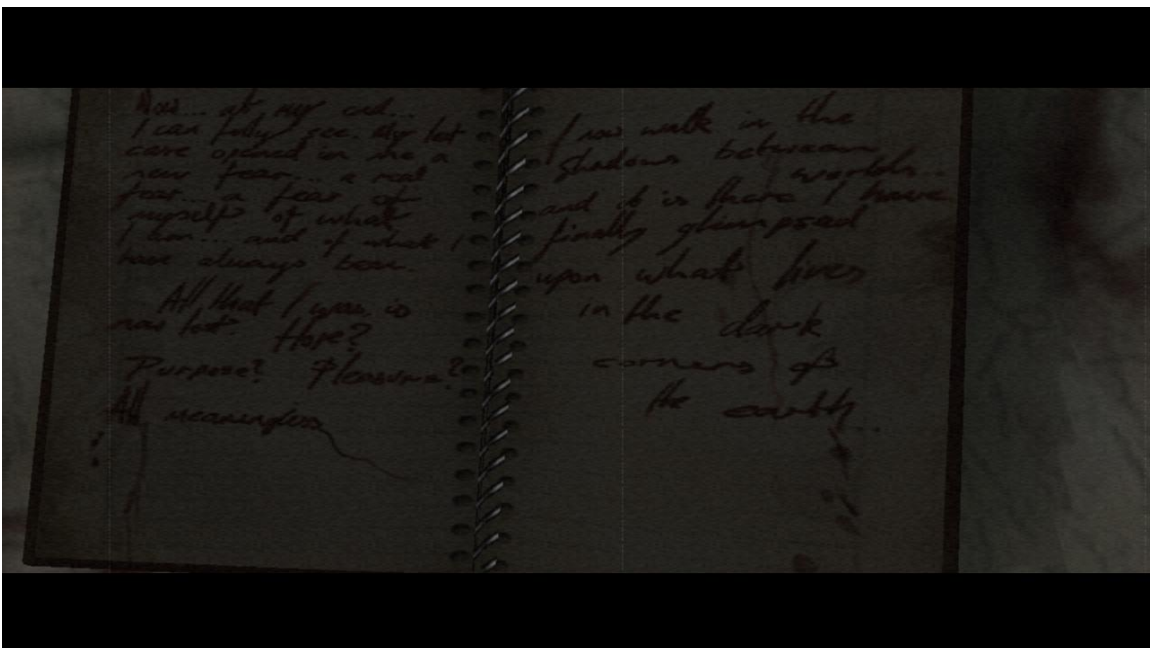 Now... at my end...
I can fully see. My last
case opened in me a
new fear... a real
fear... a fear of
myself of what
I am... and of what I
have always been.
All that I was is
now lost. Hope?
Purpose? Pleasure?
All meaningless
I now walk in the
shadows between
worlds...
and it is there I have
finally glimpsed
upon what lives
in the dark
corners of
the earth...